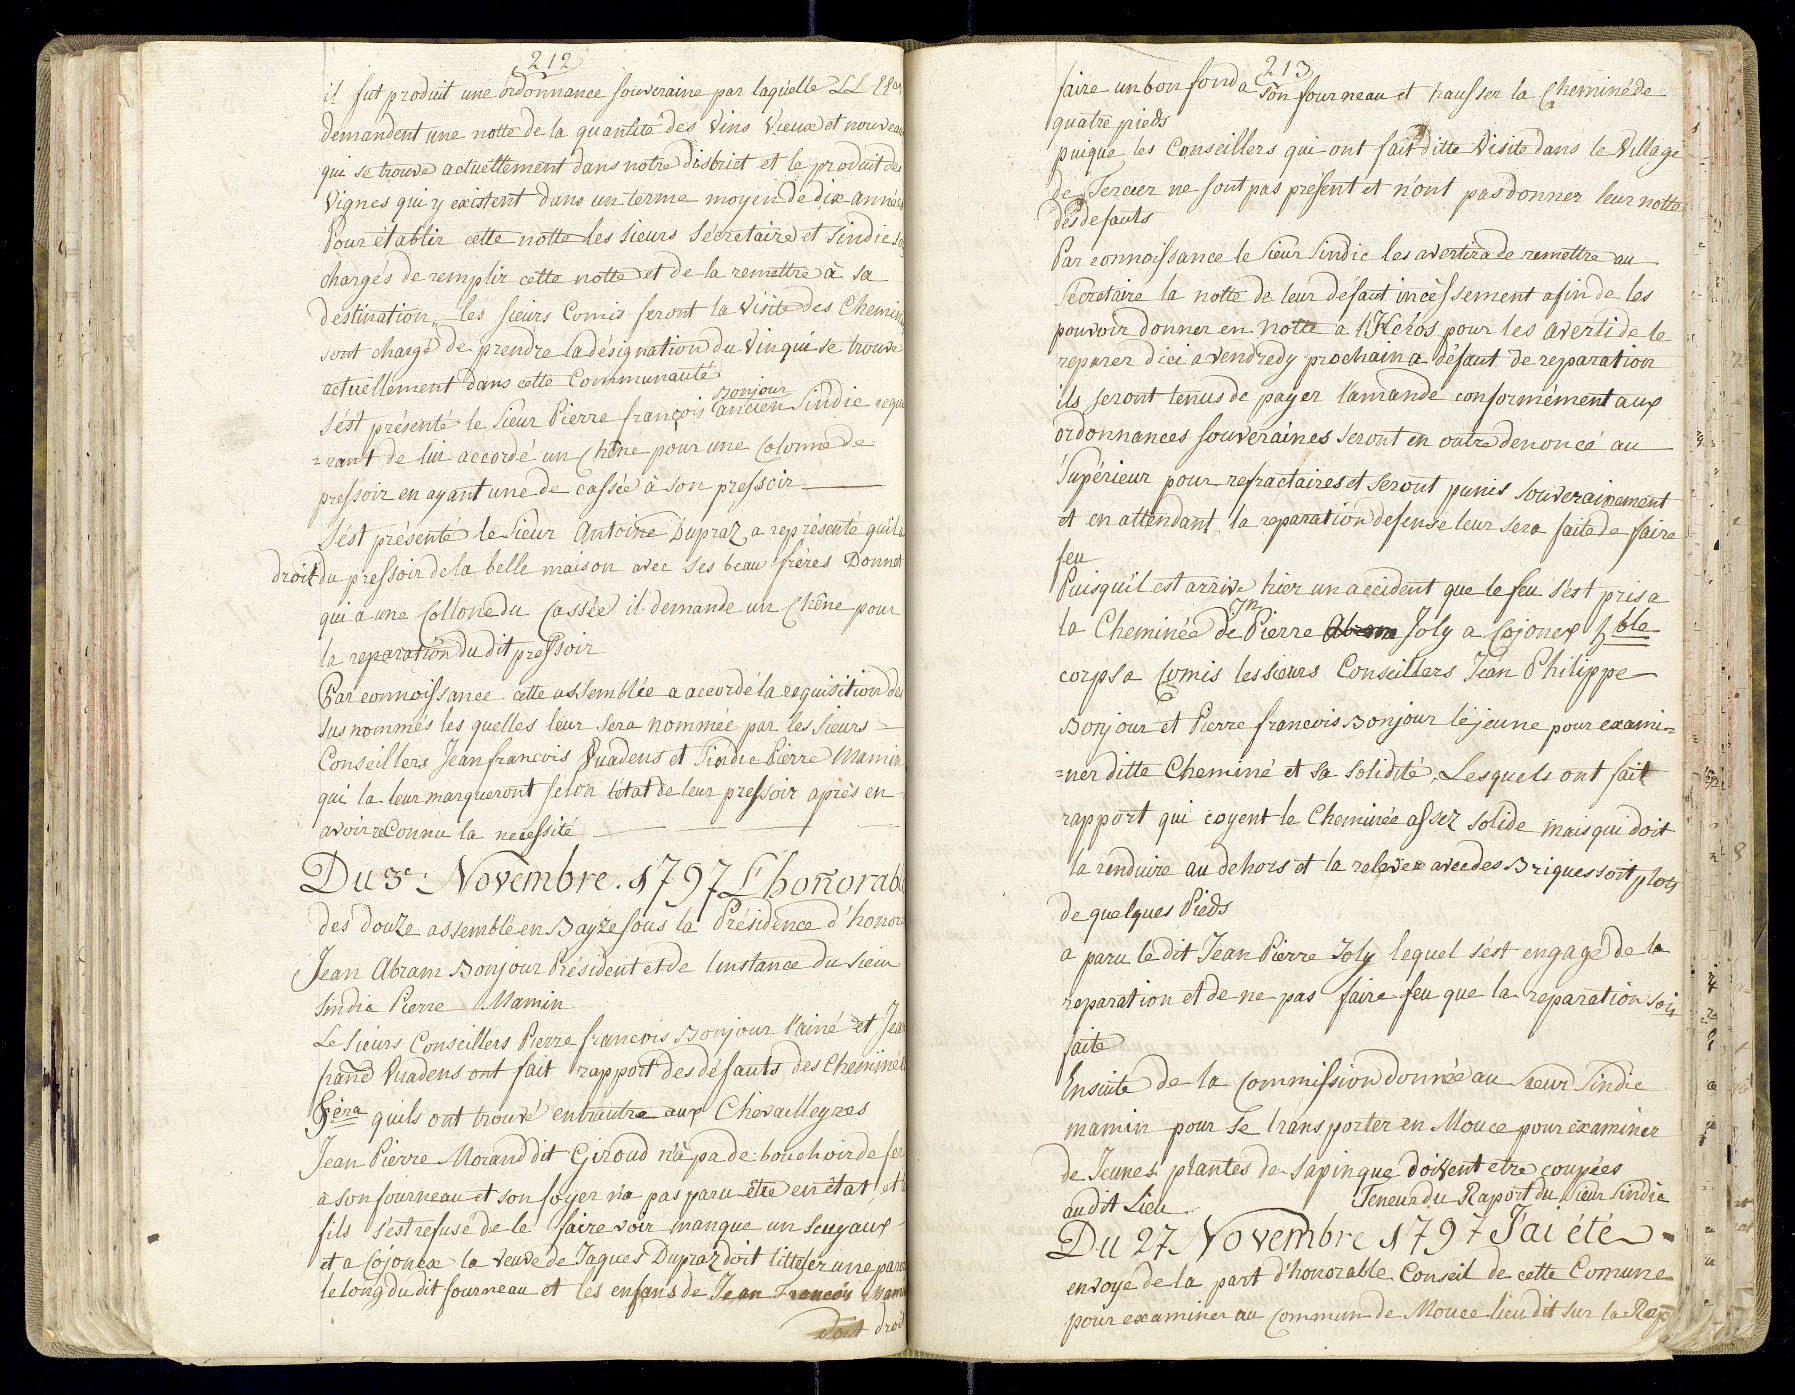 212
il fut produit une ordonnance souveraine par laquelle LL EEces
demandent une notte de la quantité des Vins Vieux et nouveau
qui se trouve actuellement dans notre district et le produit des
Vignes qui y existent dans un terme moyen de dix années
Pour établir cette notte les sieurs Sécretaire et Sindic so
chargés de remplir cette notte et de la remettre à sa
destination, les sieurs Comis feront la Visite des Chemin
sont chargé de prendre la désignation du Vin qui se trouve
actuellement dans cette Communauté
Bonjour
s'ést présenté le sieur Pierre françois ancien Sindic reque
=rant de lui accordé un Chêne pour une Colonne de
pressoir en ayant une de cassée à son pressoir
s'ést présenté le sieur Antoine Dupraz a représenté qu'il a
droit du pressoir de la belle maison avec ses beau frères Donnet
qui a une Collone du Cassée il demande un Chêne pour
la reparation du dit pressoir
Par connoissance cette assemblée a accordé la requisition des
sus nommés les quelles leur sera nommée par les Sieurs =
Conseillers Jean francois Vuadens et Sindic Pierre Mamin
qui la leur marqueront selon l'état de leur pressoir aprés en
avoir reConnu la necessité
Du 3e. Novembre. 1797 L'honorabl
des douze assemblé en Bayze sous la Présidence d'honor
Jean Abram Bonjour Président et de linstance du sieur
Sindic Pierre Mamin
Le Siéurs Conseillers Pierre francois Bonjour l'ainé et Jean
franc Vuadens ont fait rapport des défauts des Cheminée
&éra quils ont trouvé entrautre aux Chevalleyres
Jean Pierre Morand dit Giroud n'a pa de bouchoir de fer
à son fourneau et son foyer n'a pas paru être en état et
fils s'est refusé de le faire voir manque un Seuyaux
et a Cojonex la veuve de Jaques Dupraz doit litteler une paroi
le long du dit fourneau et les enfans de Jean Francois Mami
doit droit
213
faire un bon fond a son fourneau et hausser la Cheminé de
quatre pieds
puique les Conseillers qui ont fait ditte Visite dans le Village
de Tercier ne sont pas présent et n'ont pas donner leur notte
des defauts
Par connoissance le Sieur Sindic les avertira de remettre au
Secretaire la notte de leur defaut incéssement afin de les
pouvoir donner en notte a l'Héros pour les averti de le
reparer d'ici a vendredy prochain a défaut de reparation
ils seront tenus de payer l'amande conformément aux
ordonnances souveraines seront en outre denoncé au
Supérieur pour refractaires et seront punis souverainement
et en attendant la reparation defense leur sera faite de faire
feu
Puisqu'il est arrivé hier un accident que le feu s'est pris a
Jn
la Cheminée de Pierre Abram Joly a Cojonex &ble
corps a Comis les sieurs Conseillers Jean Philippe
Bonjour et Pierre francois Bonjour le jeune pour exami=
=ner ditte Cheminé et sa solidité, Lesquels ont fait
rapport qui coyent le Cheminée assez solide mais qui doit
la renduire au dehors et la relever avec des Briques soit plots
de quelques Pieds
a paru le dit Jean Pierre Joly lequel s'ést engagé de la
reparation et de ne pas faire feu que la reparation soit
faite
Ensuite de la Commission donnée au sieur Sindic
mamin pour se transporter en Mouce pour examiner
de Jeunes plantes de sapin que doivent etre coupées
au dit Lieu Teneur du Raport du Sieur Sindic
Du 27 Novembre 1797 J'ai été
envoyé de la part d'honorable Conseil de cette Comune
pour examiner au Commun de Mouce lieu dit sur la Rap